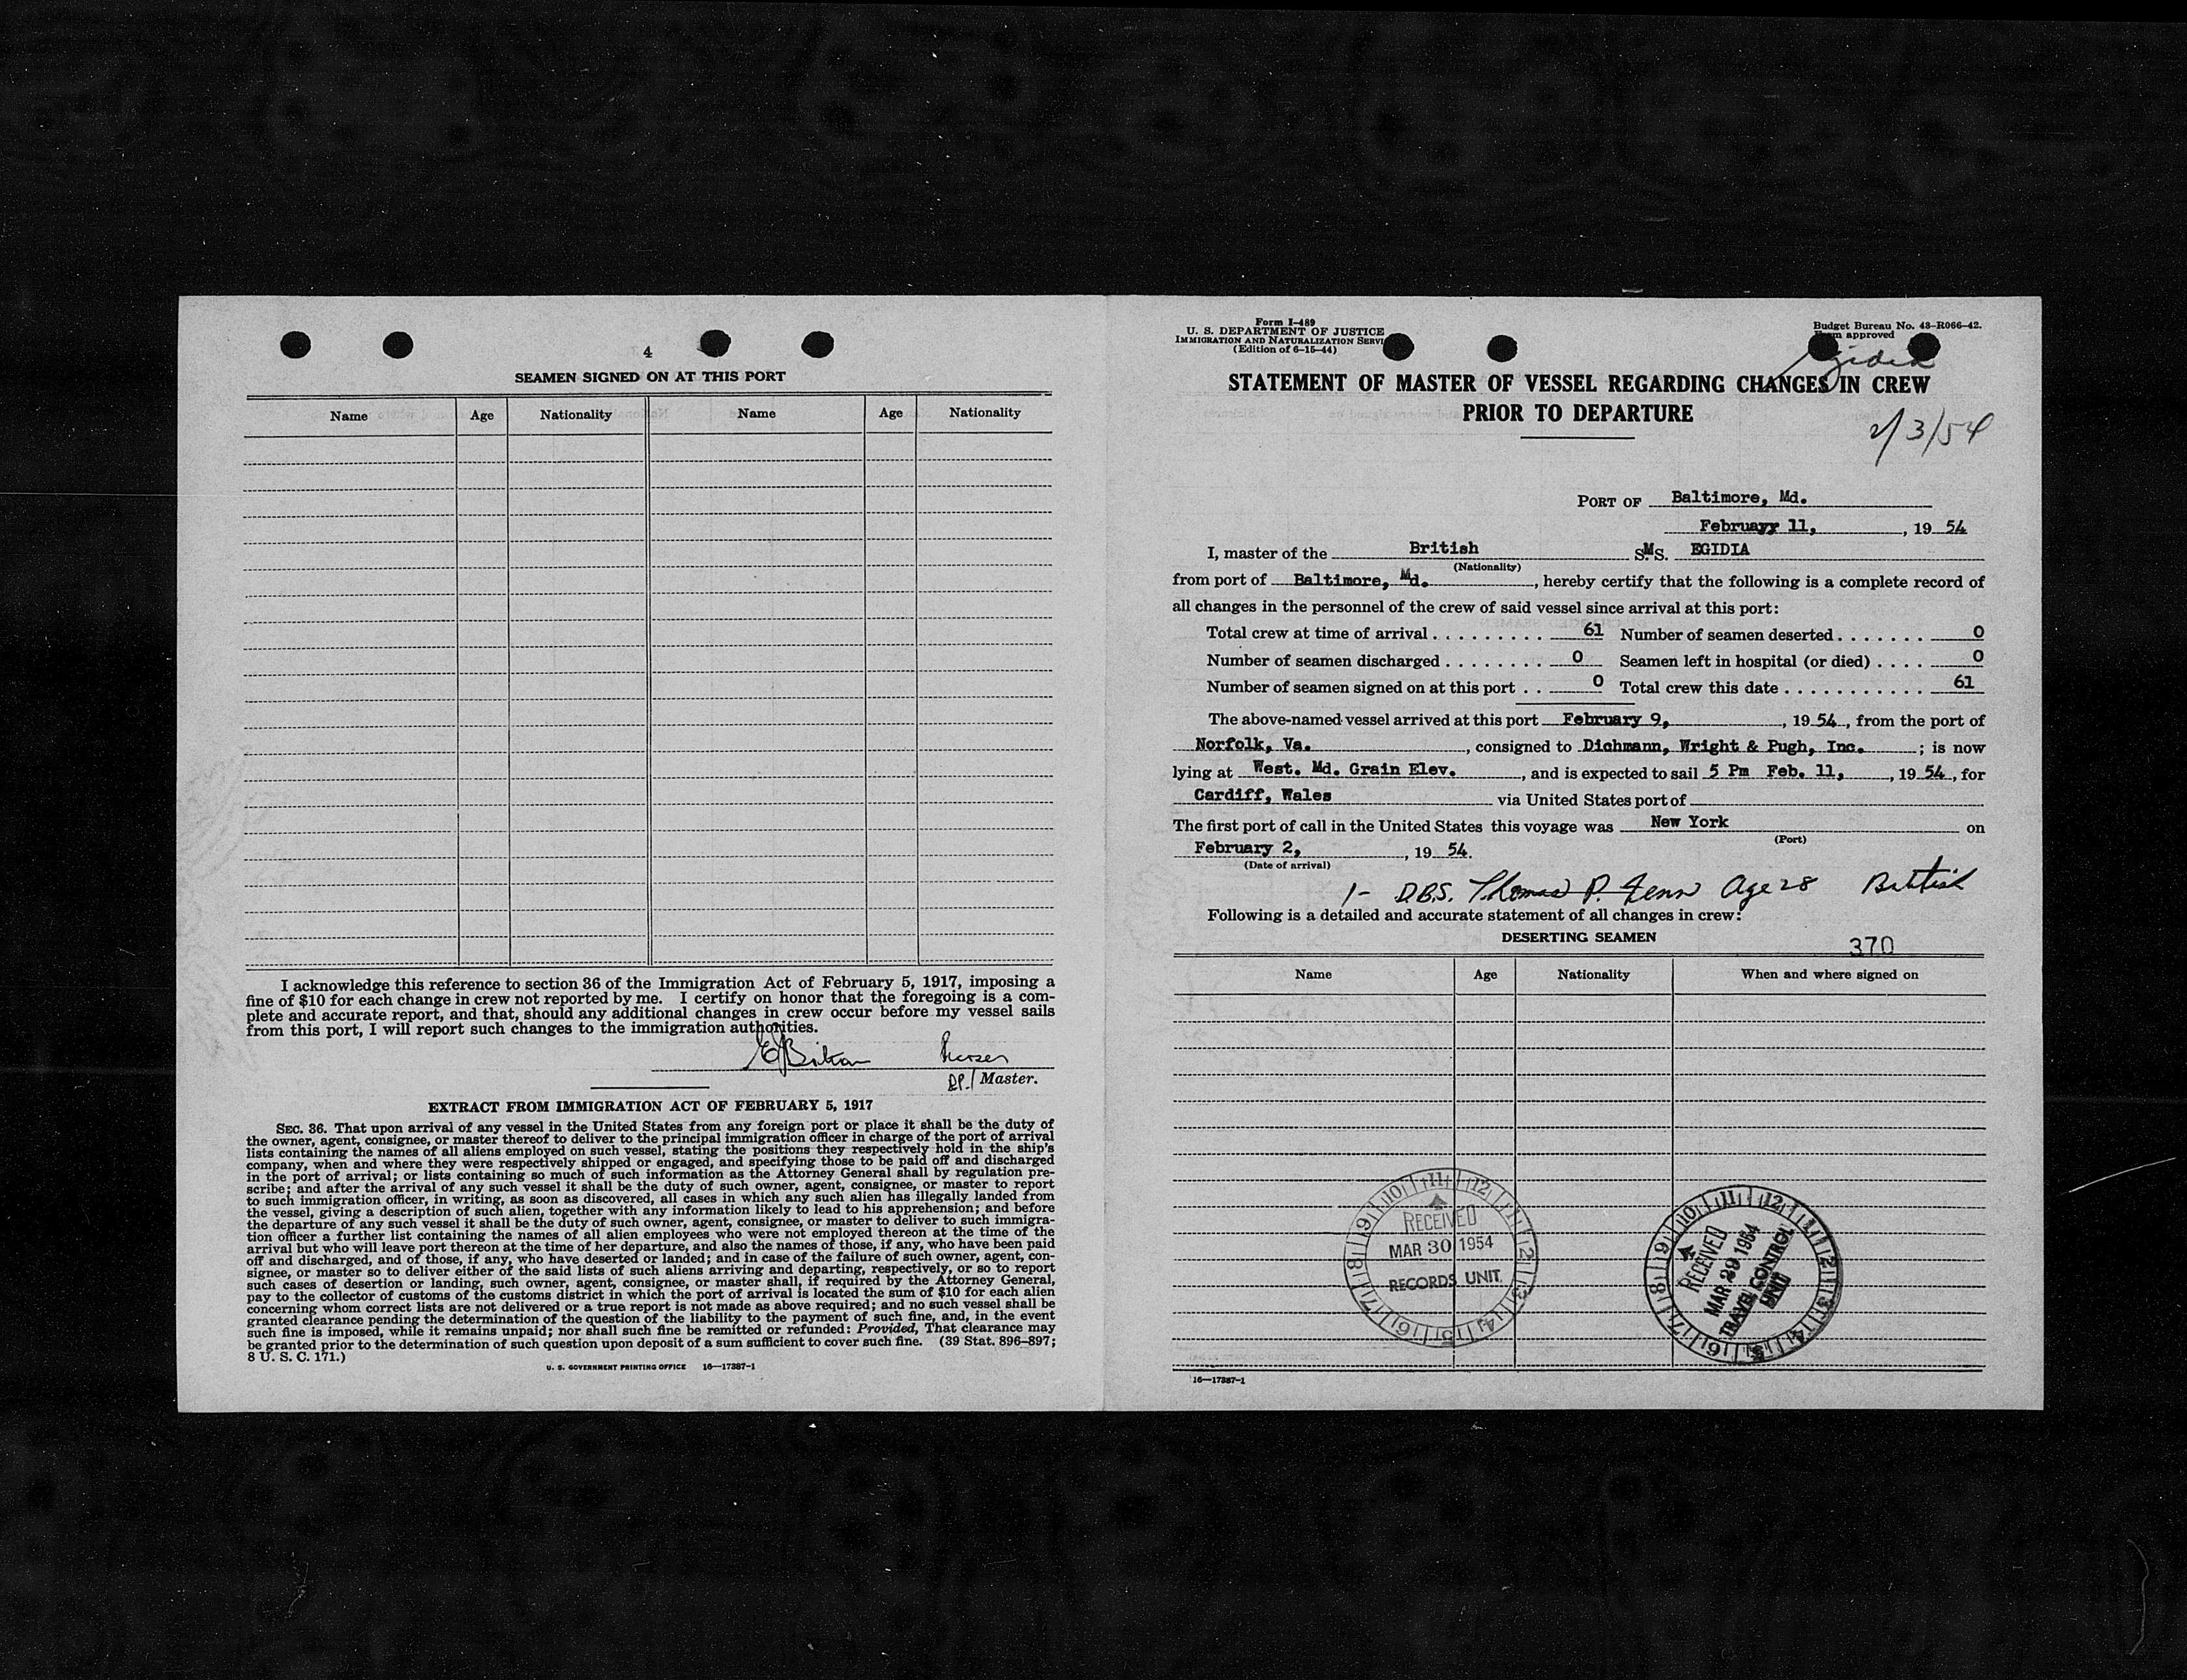 4
SEAMEN SIGNED ON AT THIS PORT
Name Age Nationality Name Age Nationality
I acknowledge this reference to section 36 of the Immigration Act of February 5, 1917, imposing a
fine of $10 for each change in crew not reported by me. I certify on honor that the foregoing is a com-
plete and accurate report, and that, should any additional changes in crew occur before my vessel sails
from this port, I will report such changes to the immigration authorities.
Purser
Master.
EXTRACT FROM IMMIGRATION ACT OF FEBRUARY 5, 1917
SEC. 36. That upon arrival of any vessel in the United States from any foreign port or place it shall be the duty of
the owner, agent, consignee, or master thereof to deliver to the principal immigration officer in charge of the port of arrival
lists containing the names of all aliens employed on such vessel, stating the positions they respectively hold in the ship's
company, when and where they were respectively shipped or engaged, and specifying those to be paid off and discharged
in the port of arrival; or lists containing so much of such information as the Attorney General shall by regulation pre-
scribe; and after the arrival of any such vessel it shall be the duty of such owner, agent, consignee, or master to report
to such immigration officer, in writing, as soon as discovered, all cases in which any such alien has illegally landed from
the vessel, giving a description of such alien, together with any information likely to lead to his apprehension; and before
the departure of any such vessel it shall be the duty of such owner, agent, consignee, or master to deliver to such immigra-
tion officer a further list containing the names of all alien employees who were not employed thereon at the time of the
arrival but who will leave port thereon at the time of her departure, and also the names of those, if any, who have been paid
off and discharged, and of those, if any, who have deserted or landed; and in case of the failure of such owner, agent, con-
signee, or master so to deliver either of the said lists of such aliens arriving and departing, respectively, or so to report
such cases of desertion or landing, such owner, agent, consignee, or master shall, if required by the Attorney General,
pay to the collector of customs of the customs district in which the port of arrival is located the sum of $10 for each alien
concerning whom correct lists are not delivered or a true report is not made as above required; and no such vessel shall be
granted clearance pending the determination of the question of the liability to the payment of such fine, and, in the event
such fine is imposed, while it remains unpaid; nor shall such fine be remitted or refunded: Provided, That clearance may
be granted prior to the determination of such question upon deposit of a sum sufficient to cover such fine. (39 Stat. 896-897;
8 U. S. C. 171.)
U. S. GOVERNMENT PRINTING OFFICE 16—17387-1
Form I-489
U. S. DEPARTMENT OF JUSTICE
IMMIGRATION AND NATURALIZATION SERVI
(Edition of 6-15-44)
Budget Bureau No. 43-R066-42.
approved
Egidia
STATEMENT OF MASTER OF VESSEL REGARDING CHANGES IN CREW
PRIOR TO DEPARTURE
2/3/54
PORT OF Baltimore, Md.
February 11, , 19 54
I, master of the British S.M.S. EGIDIA
(Nationality)
from port of Baltimore, Md. , hereby certify that the following is a complete record of
all changes in the personnel of the crew of said vessel since arrival at this port:
Total crew at time of arrival . . . . . . . . . 61 Number of seamen deserted . . . . . . . 0
Number of seamen discharged . . . . . . . . 0 Seamen left in hospital (or died) . . . . 0
Number of seamen signed on at this port . . 0 Total crew this date . . . . . . . . . . . 61
The above-named vessel arrived at this port February 9, , 19 54, from the port of
Norfolk, Va. , consigned to Dichmann, Wright & Pugh, Inc. ; is now
lying at West. Md. Grain Elev. , and is expected to sail 5 Pm Feb. 11, , 19 54, for
Cardiff, Wales via United States port of
The first port of call in the United States this voyage was New York on
(Port)
February 2, , 19 54.
(Date of arrival)
1- D.B.S. Thomas P. Fenn Age 28 British
Following is a detailed and accurate statement of all changes in crew:
DESERTING SEAMEN
370
Name Age Nationality When and where signed on
RECEIVED
MAR 30 1954
RECORDS UNIT.
RECEIVED
MAR 29 1954
TRAVEL CONTROL
UNIT
16—17387-1